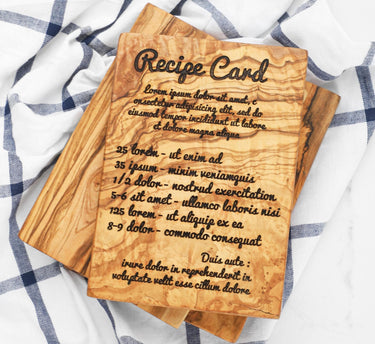 Recipe Card
lorem ipsum dolor sit amet, c
onsectetur adipisicing elit, sed do
eiusmod tempor incididunt ut labore
et dolore magna aliqua
25 lorem - ut enim ad
35 ipsum - minim veniamquis
1/2 dolor - nostrud exercitation
5-6 sit amet - ullamco laboris nisi
125 lorem - ut aliquip ex ea
8-9 dolor - commodo consequat
Duis aute :
irure dolor in reprehenderit in
voluptate velit esse cillum dolore